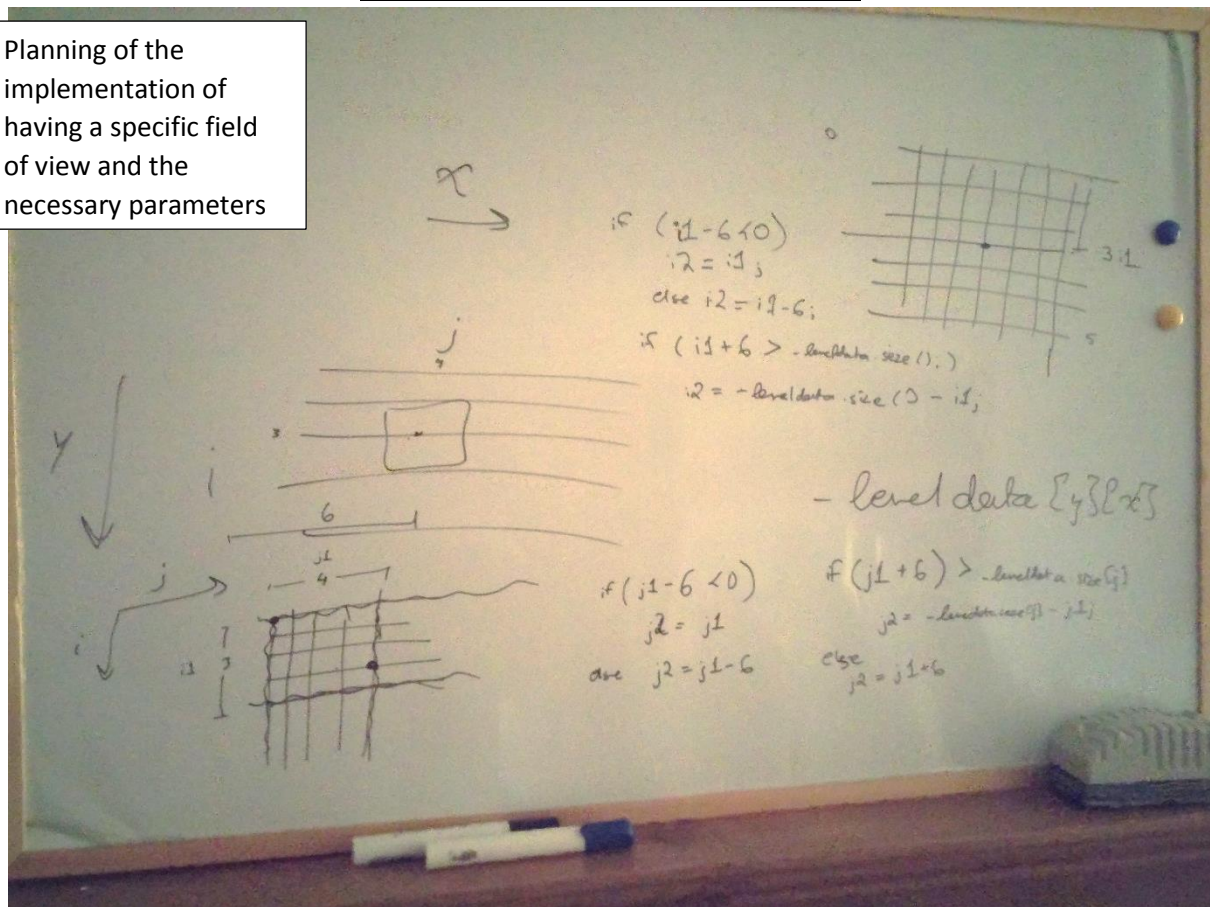 Planning of the
implementation of
having a specific field
of view and the
necessary parameters
x
0
if (i1-6<0)
i2 = i1;
else i2 = i1-6;
if (i1+6 > _leveldata.size();)
i2 = _leveldata.size() - i1;
3 i1
5
j
3
y
i
6
_leveldata[y][x]
j
i
j1
4
i1
3
if (j1-6<0)
j2 = j1
else j2 = j1-6
if (j1+6) > _leveldata.size[j]
j2 = _leveldata.size[j] - j1;
else
j2 = j1+6